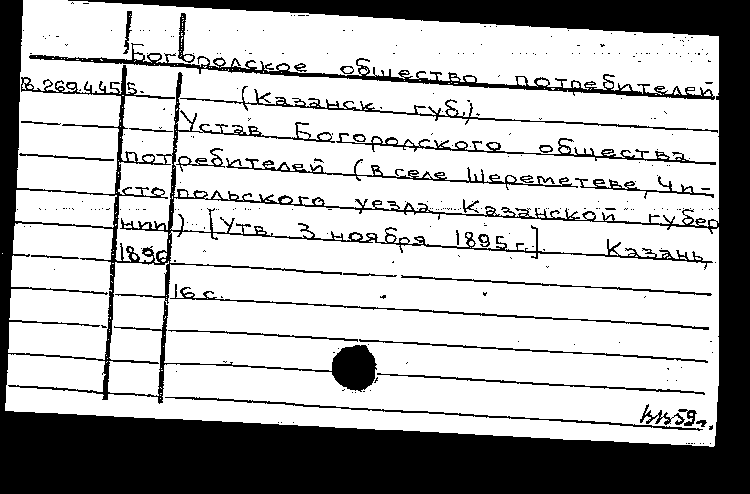 Богородское общество потребителей
В.269.4.455.
(Казанск. губ.).
Устав Богородского общества
потребителей (в селе Шереметеве, Чи-
стопольского уезда, Казанской губер
нии) [Утв. 3 ноября 1895 г.] Казань,
1896
16 с.